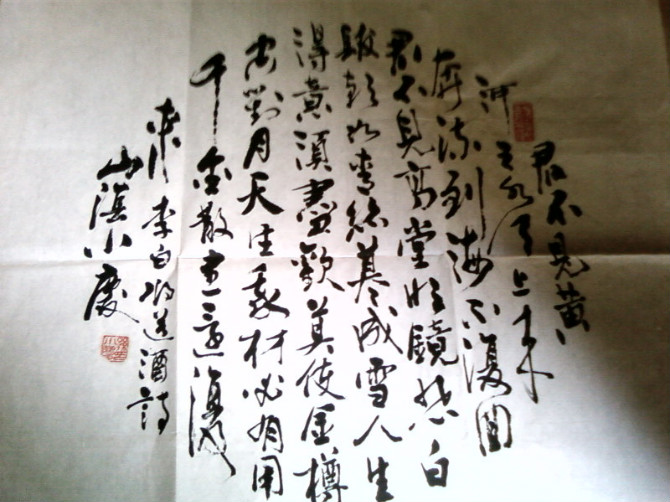 君不見黃
河之水天上来
奔流到海不復回
君不見高堂明鏡悲白
髮朝如青絲暮成雪人生
得意須盡歡莫使金樽
空對月天生我材必有用
千金散盡還復
来 李白將進酒詩
山濱小慶